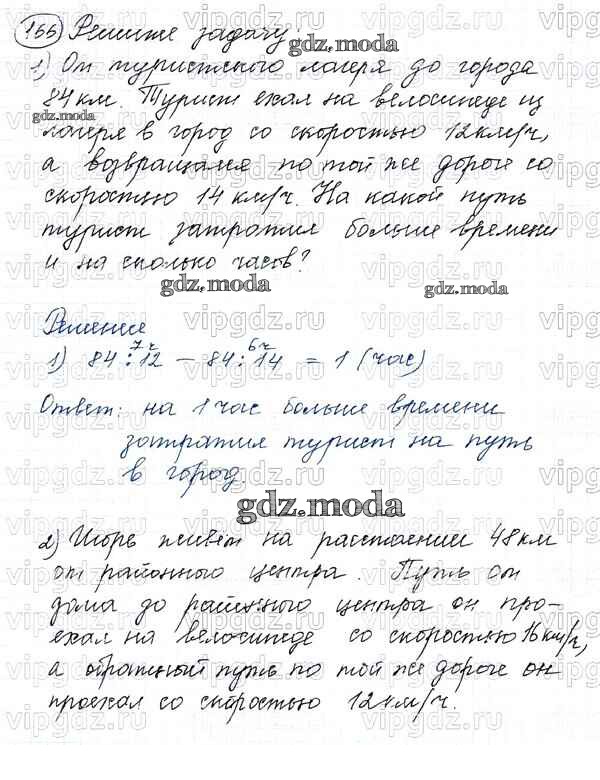 166 Решите задачу:
gdz.moda
1) От туристского лагеря до города
84 км. Турист ехал на велосипеде из
gdz.moda
лагеря в город со скоростью 12 км/ч,
а возвращался по той же дороге со
скоростью 14 км/ч. На какой путь
турист затратил больше времени
и на сколько часов?
gdz.moda gdz.moda
Решение
7ч 6ч
1) 84:12 – 84:14 = 1 (час)
Ответ: на 1 час больше времени
затратил турист на путь
в город.
gdz.moda
2) Игорь живёт на расстоянии 48 км
от районного центра. Путь от
дома до районного центра он про-
ехал на велосипеде со скоростью 16 км/ч,
а обратный путь по той же дороге он
проехал со скоростью 12 км/ч.
vipgdz.com